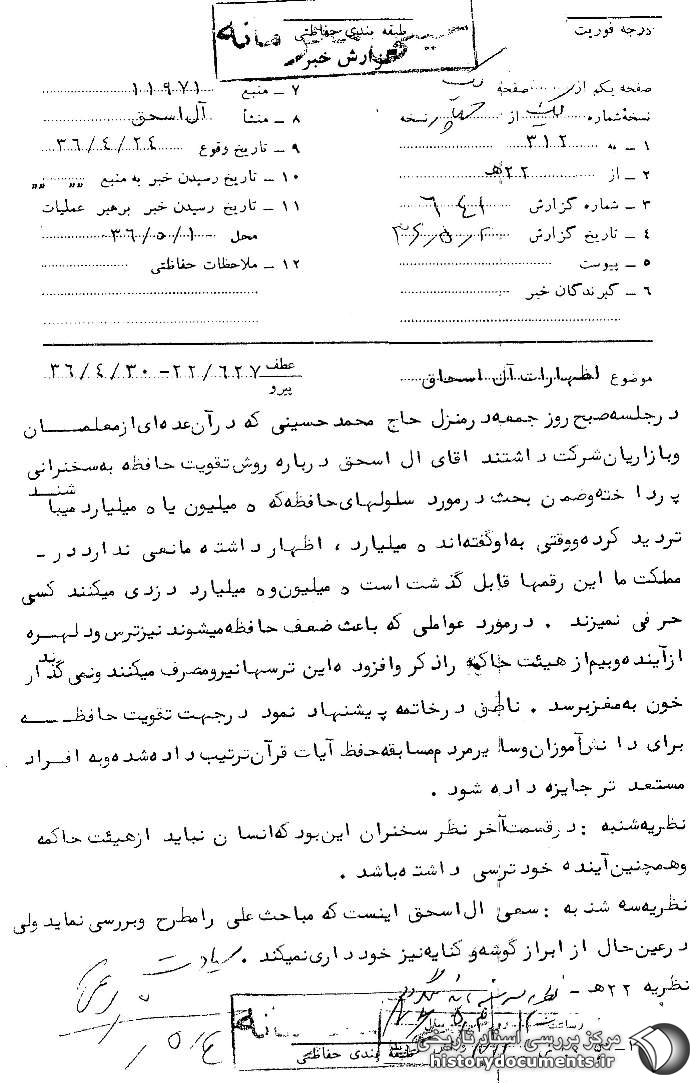 درجه فوریت
طبقه بندی حفاظتی
گزارش خبر
صفحه یکم از یک صفحه
نسخه شماره یک از چهار نسخه
۱ - به ۳۱۲
۲ - از ۲۲ هـ
۳ - شماره گزارش ۶۴۱
۴ - تاریخ گزارش
۵ - پیوست
۶ - گیرندگان خبر
۷ - منبع ۱۱۹۷۱
۸ - منشأ آل اسحق
۹ - تاریخ وقوع ۳۶/۴/۲۴
۱۰ - تاریخ رسیدن خبر به منبع " "
۱۱ - تاریخ رسیدن خبر برهبر عملیات
محل ۳۶/۵/۱
۱۲ - ملاحظات حفاظتی
موضوع اظهارات آل اسحاق
عطف پیرو ۲۲/۶۲۷ - ۳۶/۴/۳۰
درجلسه صبح روز جمعه در منزل حاج محمد حسینی که درآن عده ای از معلمان
وبازاریان شرکت داشتند اقای ال اسحق درباره روش تقویت حافظه به سخنرانی
پرداخته وضمن بحث درمورد سلولهای حافظه که ۵ میلیون یا ۵ میلیارد میباشند
تردید کرده ووقتی به او گفته اند ۵ میلیارد ، اظهار داشته مانعی ندارد در -
مملکت ما این رقمها قابل گذشت است ۵ میلیون و۵ میلیارد دزدی میکنند کسی
حرفی نمیزند . درمورد عواملی که باعث ضعف حافظه میشوند نیز ترس ودلهره
ازآینده وبیم از هیئت حاکمه راذکر وافزوده این ترسها نیرو مصرف میکنند ونمی گذارند
خون به مغز برسد . ناطق درخاتمه پیشنهاد نمود درجهت تقویت حافظه
برای دانش آموزان وسایر مردم مسابقه حفظ آیات قرآن ترتیب داده شده وبه افراد
مستعد تر جایزه داده شود .
نظریه شنبه : درقسمت آخر نظر سخنران این بود که انسان نباید ازهیئت حاکمه
وهمچنین آینده خود ترسی داشته باشد .
نظریه سه شنبه : سعی ال اسحق اینست که مباحث علی رامطرح وبررسی نماید ولی
درعین حال از ابراز گوشه و کنایه نیز خودداری نمیکند .
نظریه ۲۲ هـ -
طبقه بندی حفاظتی
مرکز بررسی اسناد تاریخی
historydocuments.ir